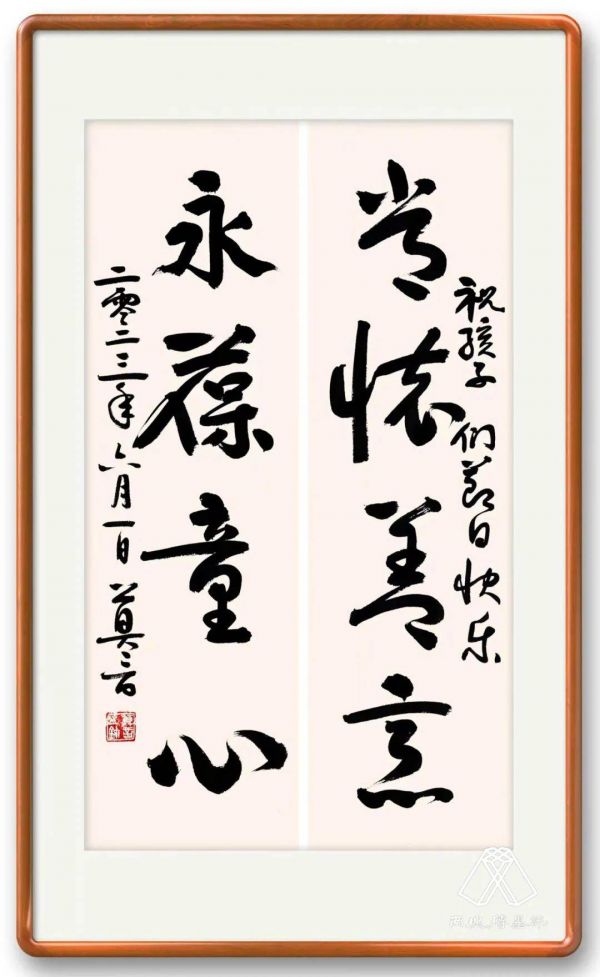 祝孩子们节日快乐
常怀善意
永葆童心
二零二三年六月一日 莫言
两块砖墨讯